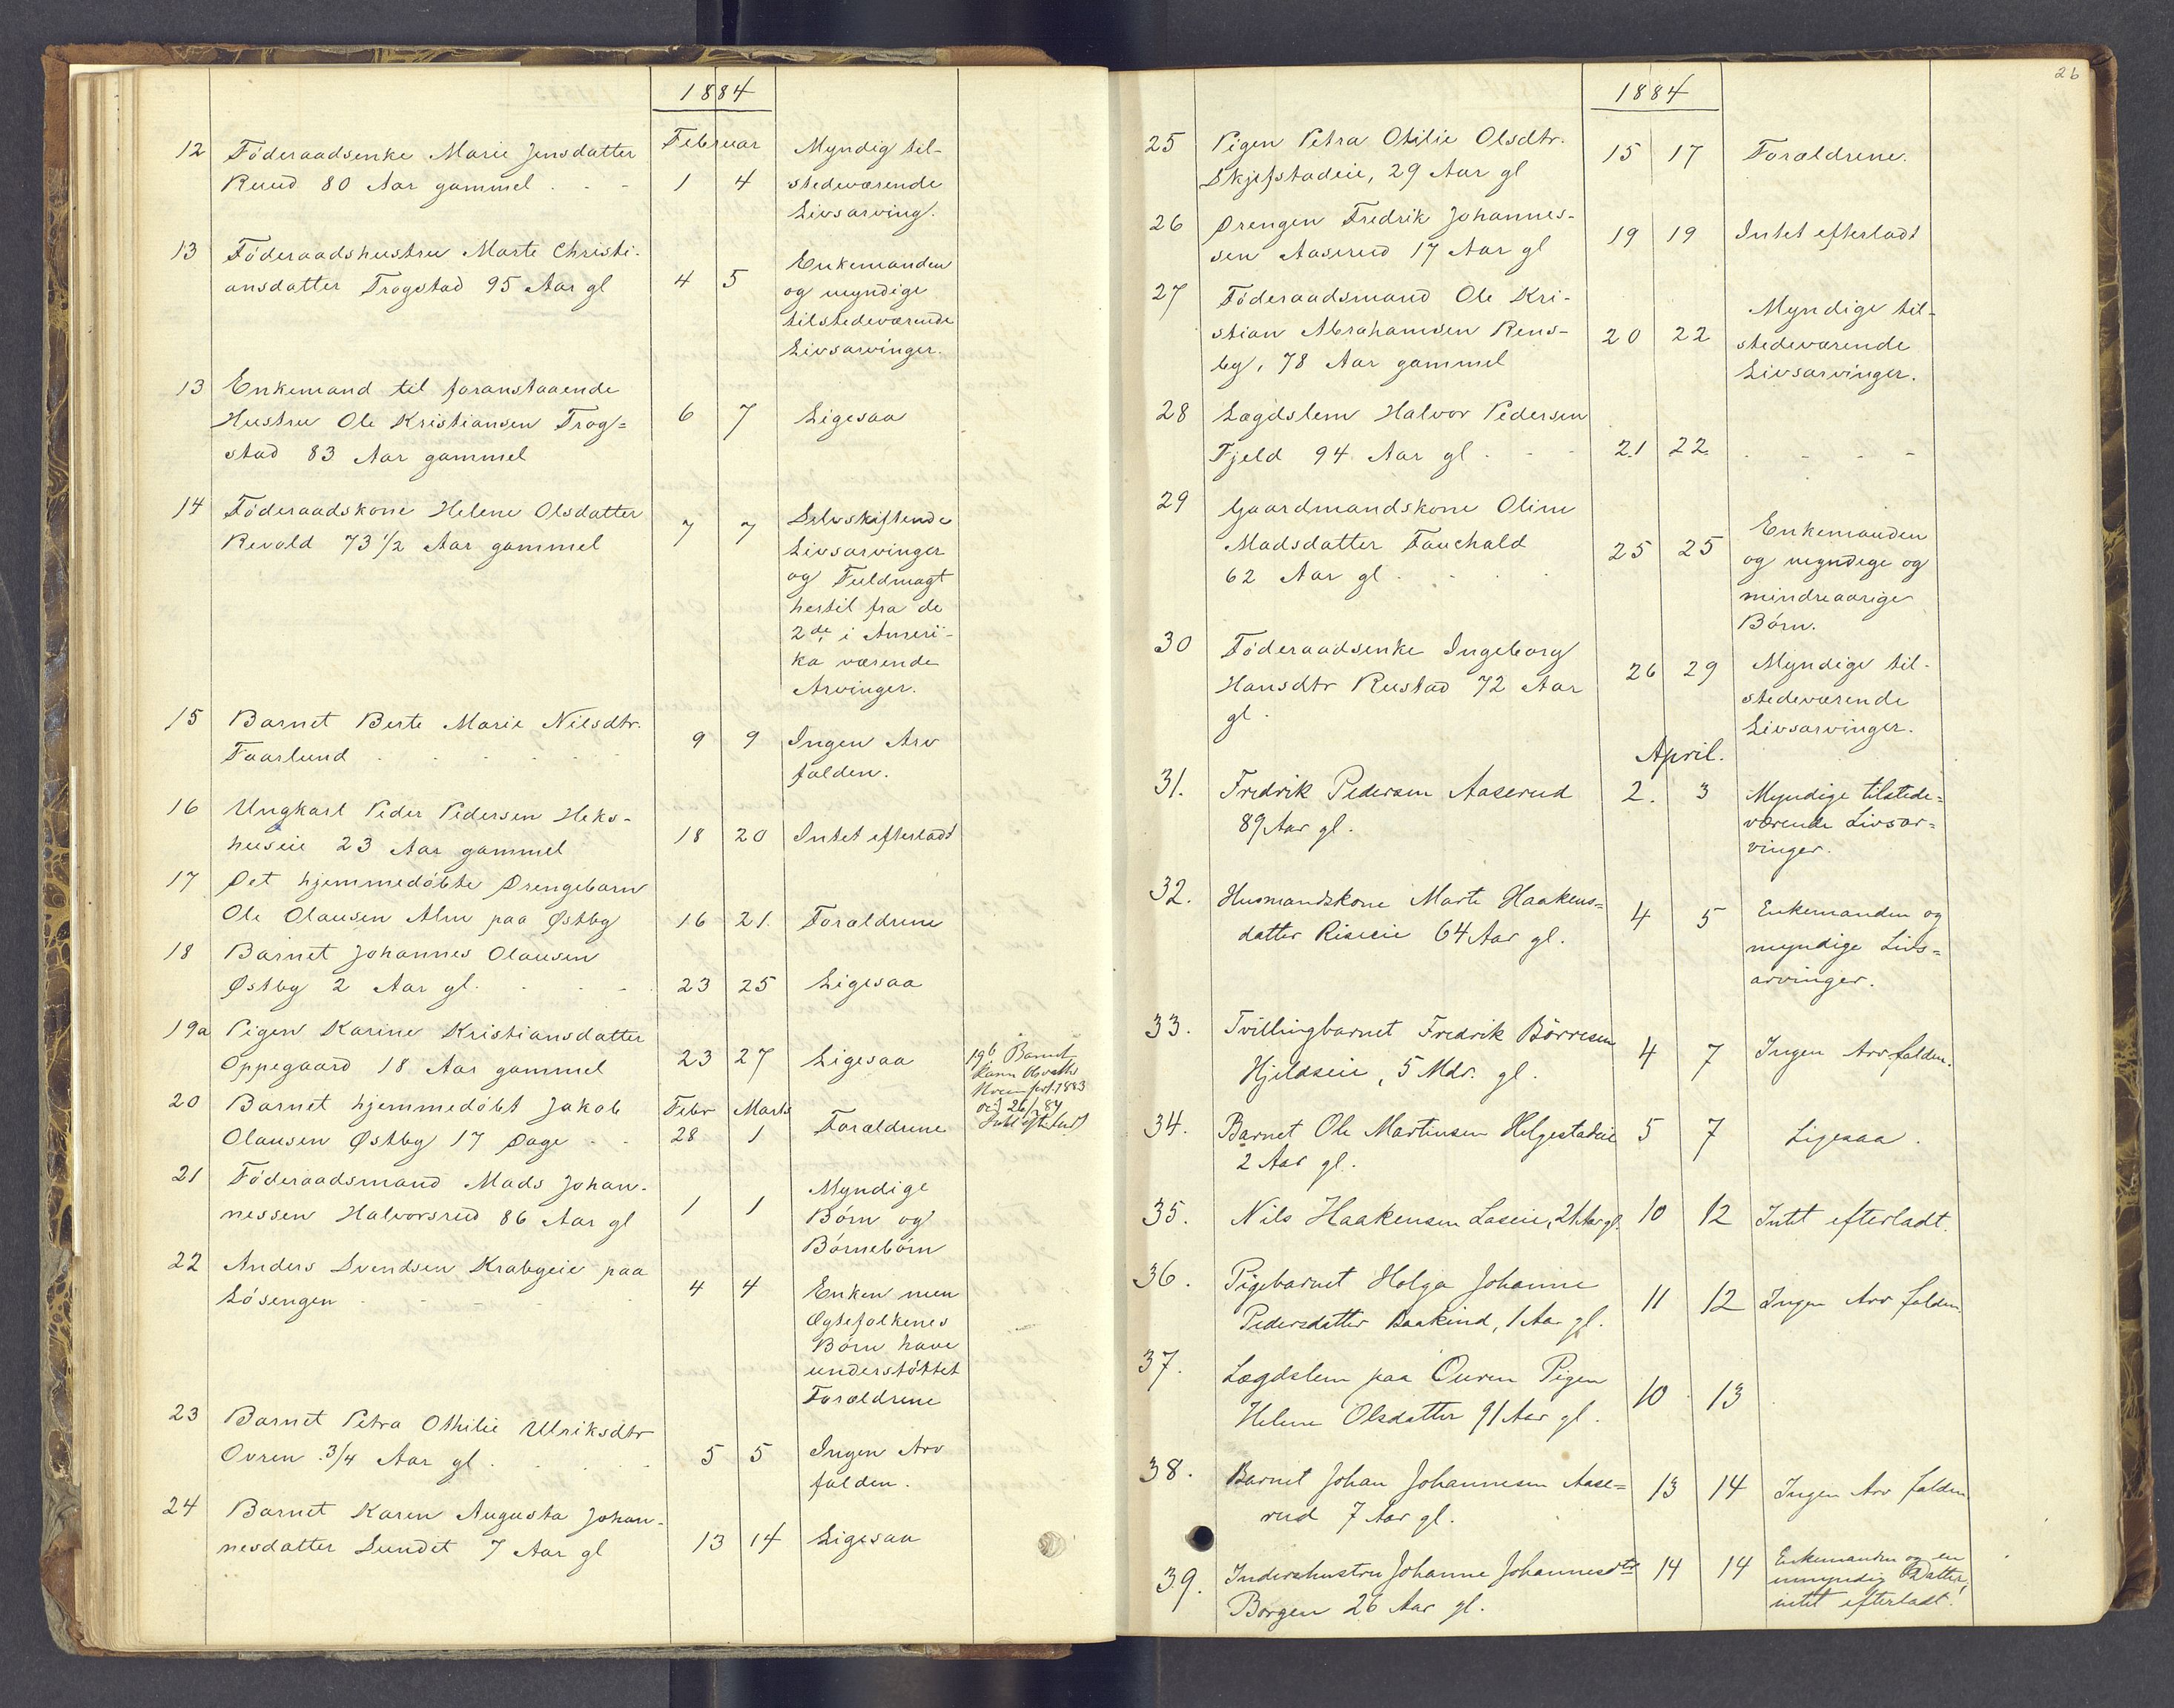 1884
Februar
12 Föderaadsenke Marie Jensdatter
Ruud 80 Aar gammel . - - 1 4 Myndig til-
stedeværende
Livsarving.
13 Föderaadshustru Marte Christi-
ansdatter Trogstad 95 Aar gl 4 5 Enkemanden
og myndige
tilstedeværende
Livsarvinger.
13 Enkemand til foranstaaende
Hustru Ole Kristiansen Trog=
stad 83 Aar gammel 6 7 Ligesaa
14 Föderaadskone Helene Olsdatter
Revold 73 1/2 Aar gammel 7 7 Selvskiftende
Livsarvinger
og Fuldmagt
hertil fra de
2de i Ameri-
ka værende
Arvinger.
15 Barnet Berte Marie Nilsdtr.
Faarlund . . . . . 9 9 Ingen Arv
falden.
16 Ungkarl Peder Pedersen Heks-
huseie 23 Aar gammel 18 20 Intet efterladt
17 Det hjemmedöbte Drengebarn
Ole Olausen Alm paa Østby 16 21. Forældrene
18 Barnet Johannes Olausen
Østby 2 Aar gl. . . . 23 25 Ligesaa
19a Pigen Karine Kristiansdatter
Oppegaard 18 Aar gammel 23 27 Ligesaa
19b Barnet
1883
26/ 84
20 Barnet hjemmedöbt Jakob Febr Marts
Olausen Østby 17 Dage - . 28 1 Forældrene
21 Föderaadsmand Mads Johan-
nessen Halvorsrud 86 Aar gl 1 1 Myndige
Börn og
Börnebörn
22 Anders Svendsen Krabyeie paa
Lösengen - - - 4 4 Enken men
Ægtefolkenes
Börn have
understöttet
Forældrene
23 Barnet Petra Othilie Ulriksdtr
Ovren 3/4 Aar gl . . . . 5 5 Ingen Arv
falden.
24 Barnet Karen Augusta Johan-
nesdatter Lundet 7 Aar gl 13 14 Ligesaa
26
1884
25 Pigen Petra Otilie Olsdtr.
Skjefstadeie, 29 Aar gl 15 17 Forældrene.
26 Drengen Fredrik Johannes-
sen Aaserud 17 Aar gl 19 19 Intet efterladt
27 Föderaadsmand Ole Kri-
stian Abrahamsen Rens-
by, 78 Aar gammel 20 22 Myndige til-
stedeværende
Livsarvinger.
28 Lægdslem Halvor Pedersen
Fjeld 94 Aar gl . - - 21 22. . - - -
29 Gaardmandskone Oline
Madsdatter Fauchald
62 Aar gl . . . . 25 25 Enkemanden
og myndige og
mindreaarige
Börn.
30 Föderaadsenke Ingeborg
Hansdtr Rustad 72 Aar
gl . 26 29 Myndige til-
stedeværende
Livsarvinger.
April.
31. Fredrik Pedersen Aaserud
89 Aar gl. 2. 3 Myndige tilstede=
værende Livsar=
vinger.
32. Husmandskone Marte Haakens=
datter Riseeie 64 Aar gl. 4 5 Enkemanden og
myndige Livs=
arvinger.
33. Tvillingbarnet Fredrik Börresen
Hjeldseie, 5 Mdr. gl. 4 7 Ingen Arv falden.
34. Barnet Ole Martinsen Helgestadeie
2 Aar gl. 5 7 Ligesaa.
35. Nils Haakensen Laseie, 21 Aar gl. 10 12 Intet efterladt.
36. Pigebarnet Helga Johanne
Pedersdatter Baakind, 1 Aar gl. 11 12 Ingen Arv falden
37. Lægdslem paa Ouren Pigen
Helene Olsdatter 91 Aar gl. 10 13
38. Barnet Johan Johannesen Aase=
rud 7 Aar gl. 13 14 Ingen Arv falden
39. Indershustru Johanne Johannesdtr
Borgen 26 Aar gl. 14 14 Enkemanden og en
umyndig Datter,
intet efterladt.